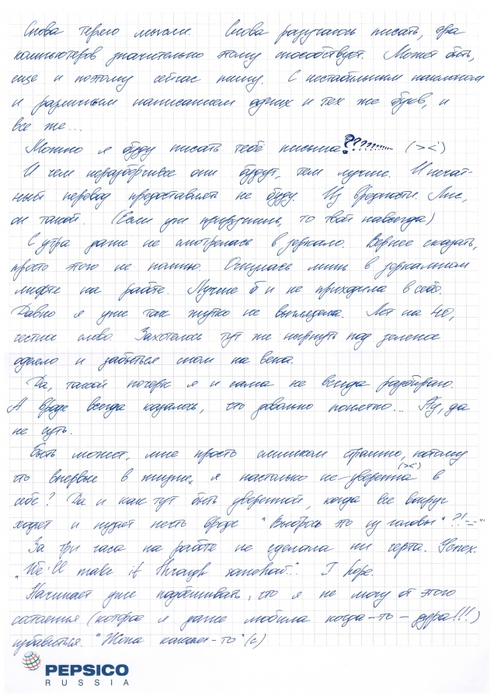 Снова теряю мысли. Снова разучаюсь писать, эра
компьютеров значительно этому способствует. Может быть,
еще и поэтому сейчас пишу. С нестабильным наклоном
и различным написанием одних и тех же букв, и
все же...
Можно я буду писать тебе письма?????......... (><)
И чем неразборчивее они будут, тем лучше. И печат-
ный перевод предоставлять не буду. Из вредности. Лис,
он такой. (Если уж приручишь, то твой навсегда)
С утра даже не смотрелась в зеркало. Вернее сказать,
просто этого не помню. Очнулась лишь в зеркальном
лифте на работе. Лучше б и не приходила в себя.
Давно я уже так жутко не выглядела. Лет на 40,
честное слово. Захотелось тут же нырнуть под зеленое
одеяло и забыться сном на века.
Да, такой почерк я и сама не всегда разбираю.
А вроде всегда казалось, что довольно понятно... Ну, да
не суть.
Быть может, мне просто слишком страшно, потому
что впервые в жизни я настолько не уверена в (><)
себе? Да и как тут быть уверенной, когда все вокруг
ходят и нудят нечто вроде "Выбрось это из головы"?!
За три часа на работе не сделала ни черта. Успех.
"We'll make it through somehow". I hope.
Начинает уже подбешивать, что я не могу от этого
состояния (которое я даже любила когда-то - дура!!!)
избавиться. "Жена какого-то" (с)
PEPSICO
RUSSIA